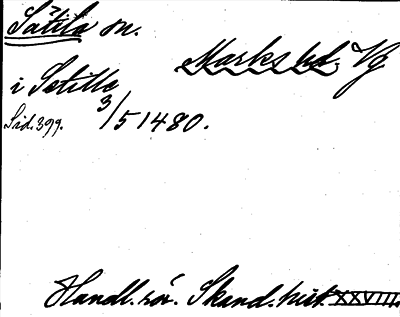 Sätila sn.
Marks hd. Vg
i Setille
3/5 1480.
Sid. 399.
Handl. rör. Skand. hist. XXVIII.